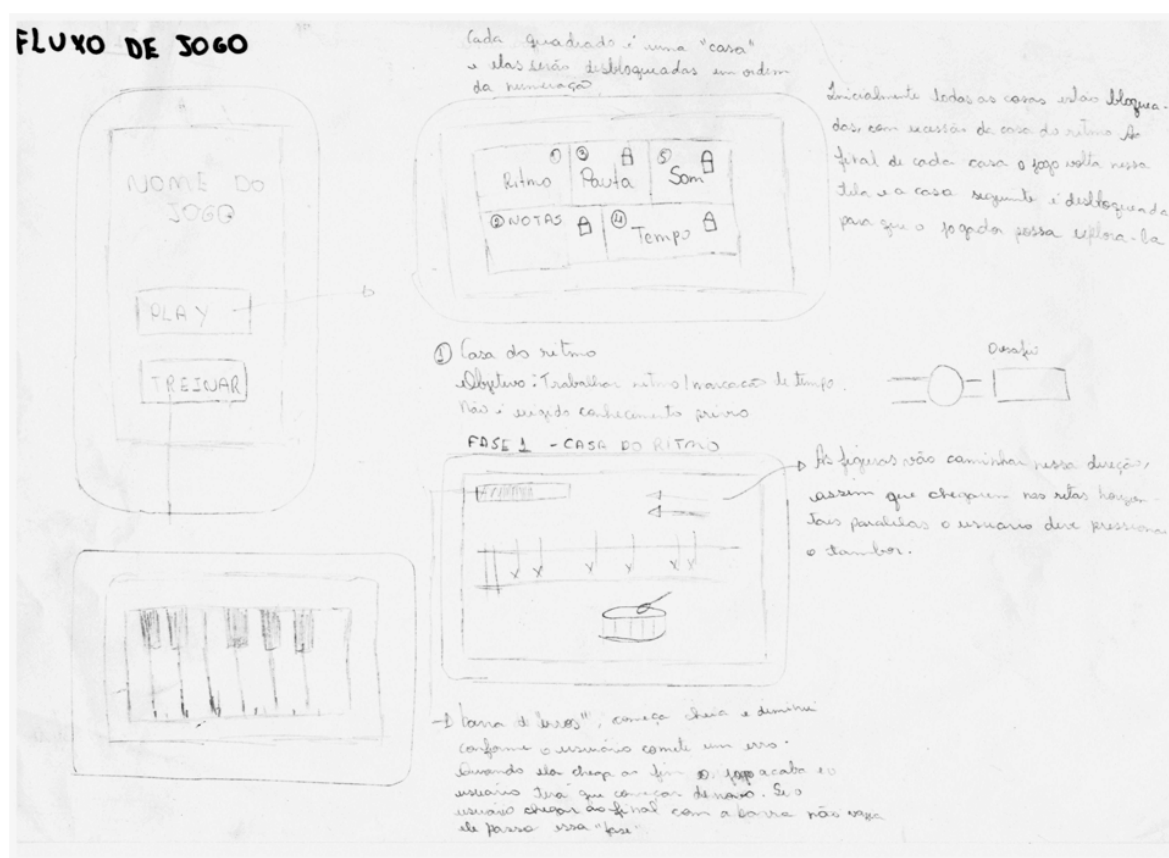 FLUXO DE JOGO
NOME DO
JOGO
PLAY
TREINAR
Cada quadrado é uma "casa"
e elas serão desbloqueadas em ordem
da numeração
① Ritmo
③ Pauta
⑤ Som
② NOTAS
④ Tempo
Inicialmente todas as casas estão bloquea-
das, com da casa do ritmo Ao
final de cada casa o jogo volta nessa
tela e a casa seguinte é desbloqueada
para que o jogador possa explora-la
① Casa do ritmo
Objetivo: Trabalhar ritmo/marcação de tempo.
Não é exigido conhecimento prévio
Desafio
FASE 1 - CASA DO RITMO
As figuras vão caminhar nessa direção,
assim que chegarem nas retas horizon-
tais paralelas o usuario deve pressionar
o tambor.
barra de "erros", começa cheia e diminui
conforme o usuário comete um erro.
Quando ela chega ao fim o jogo acaba e o
usuário terá que começar denovo. Se o
usuário chegar ao final com a barra não vazia
ele passa essa "fase"